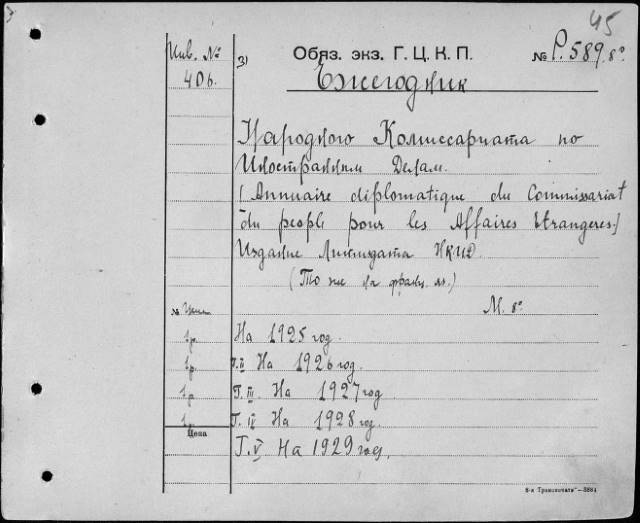 45
Инв. № 3) Обяз. экз. Г. Ц. К. П. № Р.589. 8º
406. Ежегодник
Народного Комиссариата по
Иностранным Делам.
(Annuaire diplomatique du Commissariat
du peuple pour les Affaires Etrangeres.)
Издание Литиздата НКИД
(То же на франц. яз.)
№ Цена М. 8º
1 р. На 1925 год.
1 р. т. II На 1926 год.
1 р. Т. III. На 1927 год
1 р. Т. IV На 1928 год.
Цена
Т. V На 1929 год.